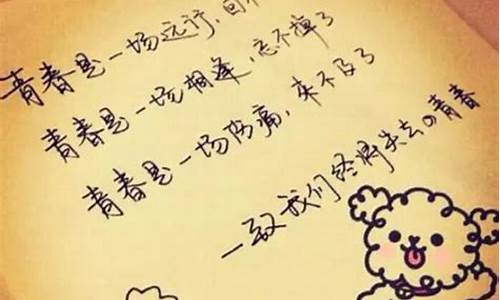 青春是一场远行，回
青春是一场相逢，忘不掉了
青春是一场伤痛，来不及了
—致我们终将失去の青春